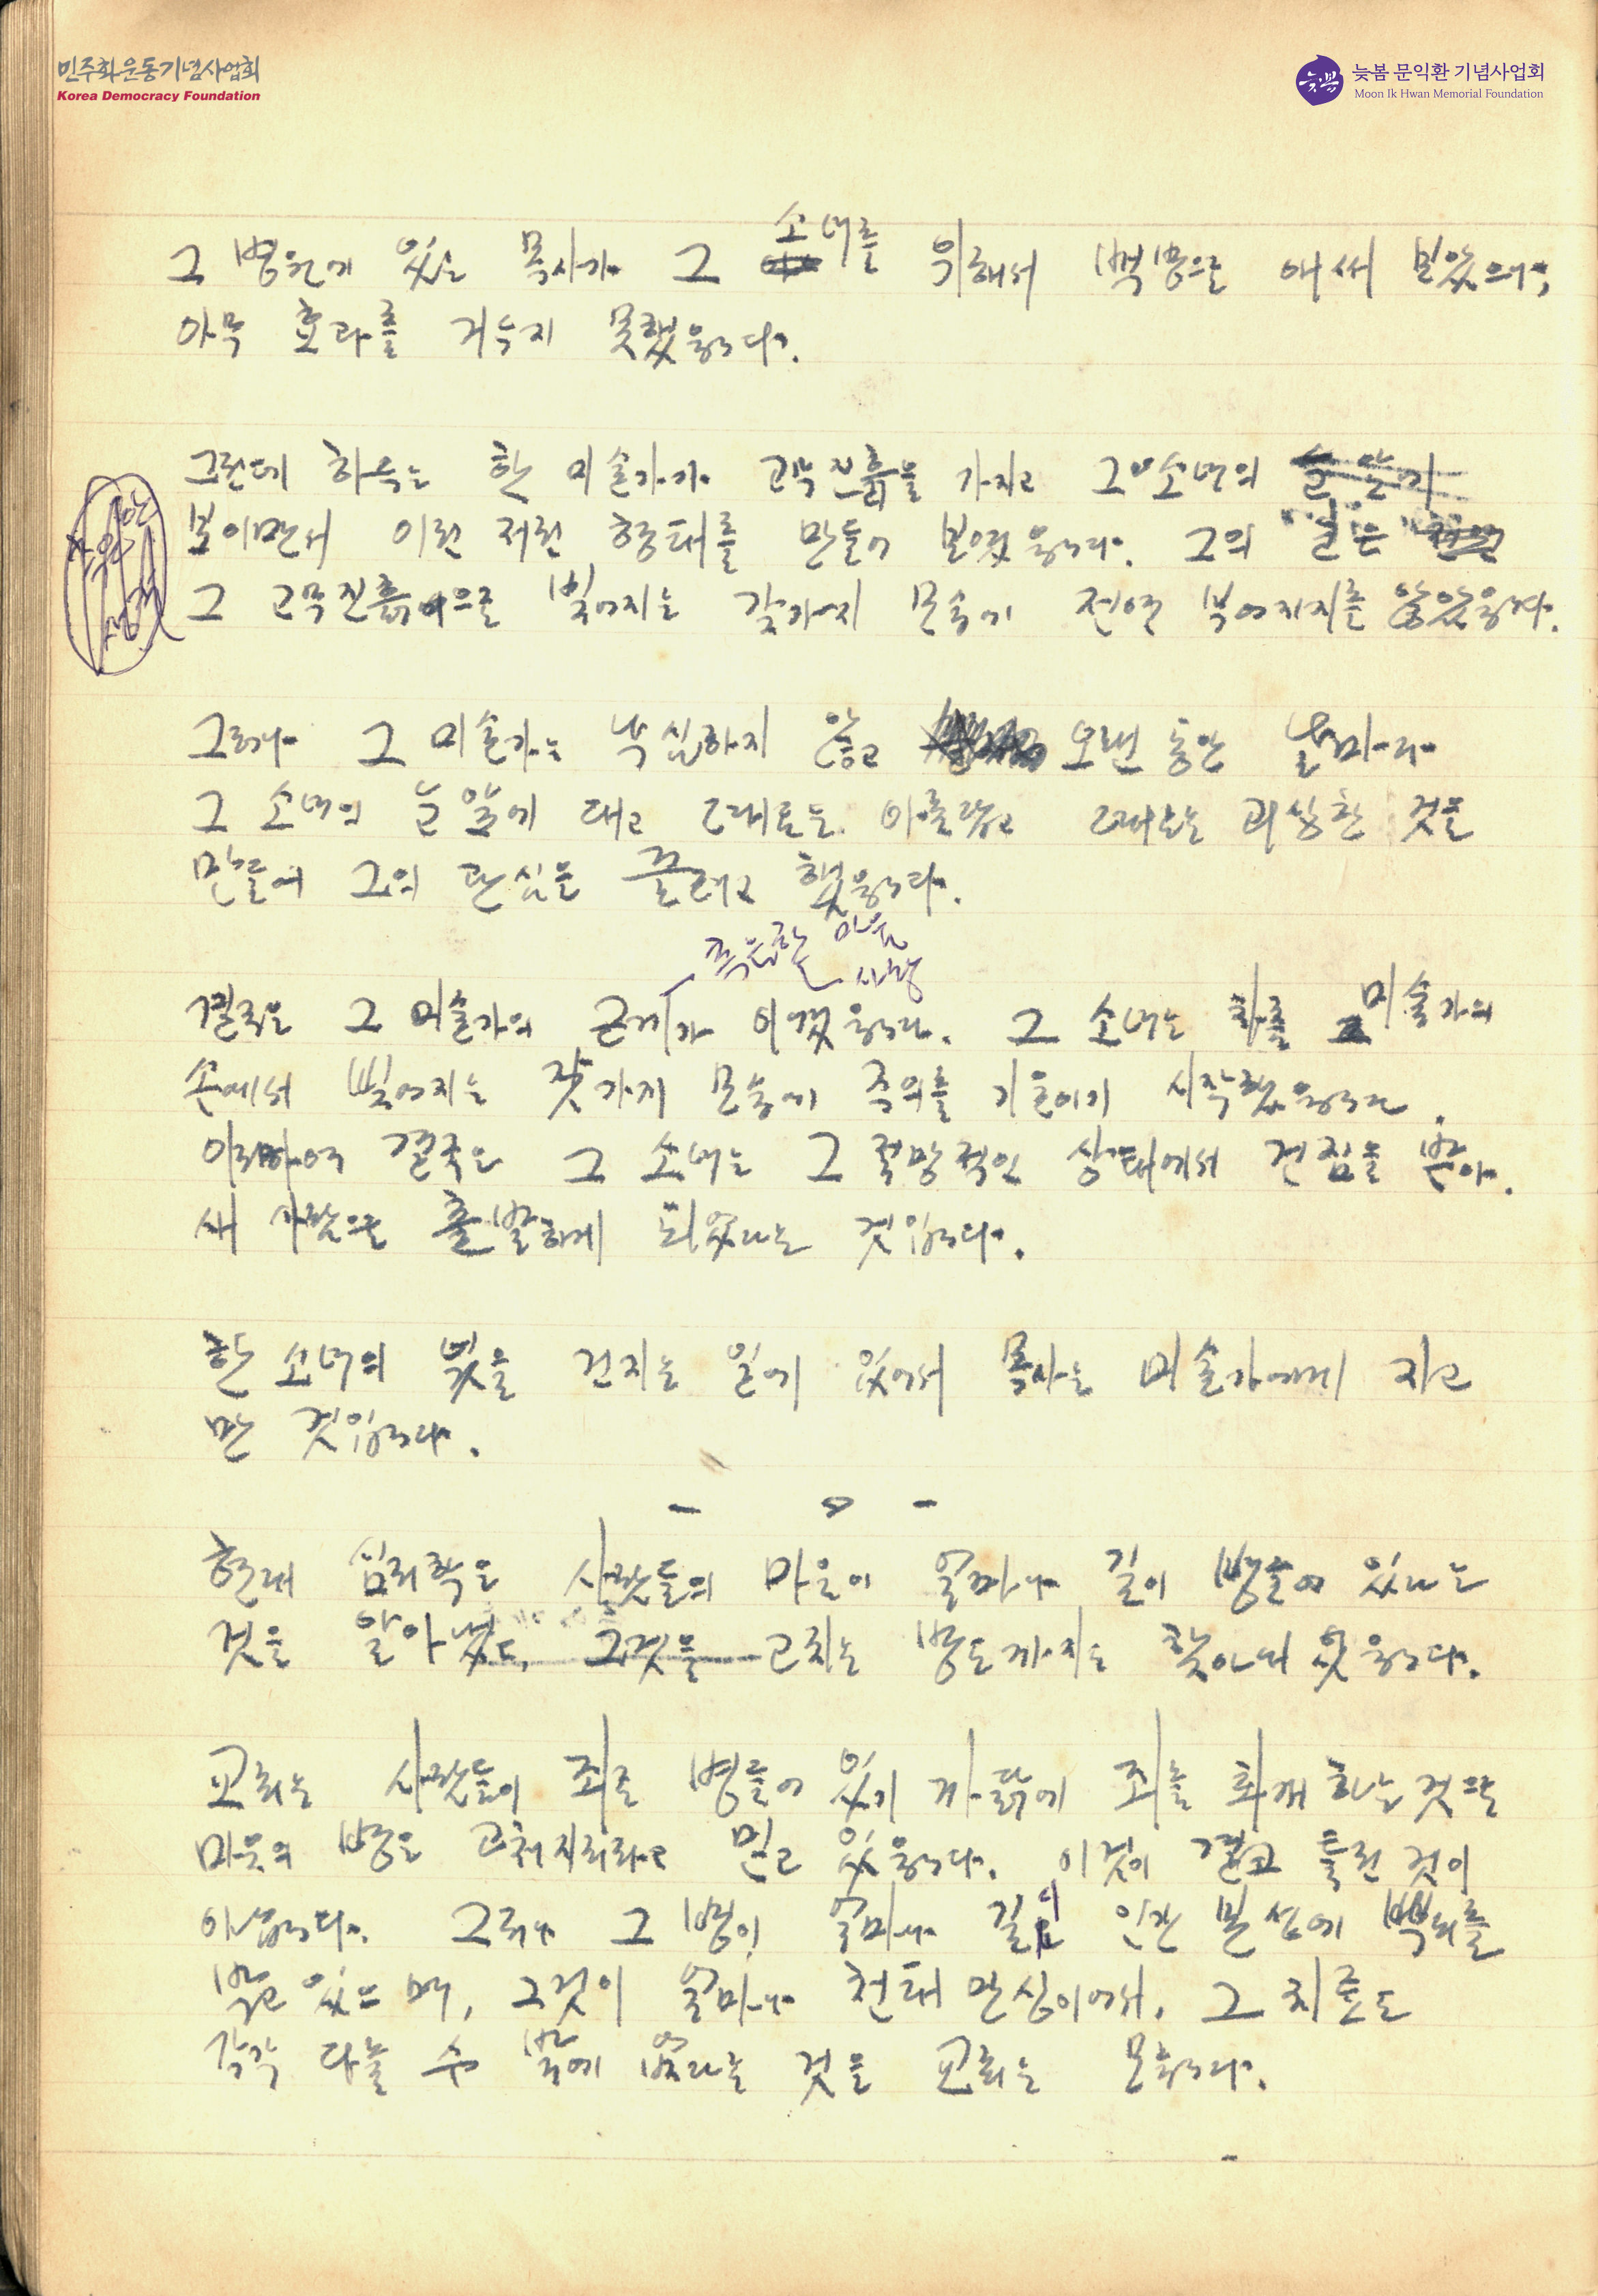 민주화운동기념사업회
Korea Democracy Foundation
늦봄 문익환 기념사업회
Moon Ik Hwan Memorial Foundation
그 병원에 있는 목사가 그 소녀를 위해서 백방으로 애써 보았으나,
아무 효과를 거두지 못했읍니다.
그런데 하루는 한 미술가가 고무진흙을 가지고 그 소녀의 눈 앞에
보이면서 이런 저런 형태를 만들어 보였읍니다. 그의 눈은
그 고무진흙으로 빚어지는 갖가지 모습에 전연 부어지지를 않았읍니다.
그러나 그 미술가는 낙심하지 않고 오랜 동안 날마다
그 소녀의 눈 앞에 대고 때로는 아름답고 때로는 괴상한 것을
만들어 그의 관심을 끌려고 했읍니다.
측은한 마음
사랑
결국은 그 미술가의 끈기가 이겼읍니다. 그 소녀는 차츰 미술가의
손에서 빚어지는 갖가지 모습에 주의를 기울이기 시작했읍니다.
이리하여 결국은 그 소녀는 그 절망적인 상태에서 건짐을 받아.
새 사람으로 출발하게 되었다는 것입니다.
한 소녀의 넋을 건지는 일에 있어서 목사는 미술가에게 지고
만 것입니다.
현대 심리학은 사람들의 마음이 얼마나 깊이 병들어 있다는
것을 알아냈고, 그것을 고치는 방도까지도 찾아내었읍니다.
교회는 사람들이 죄로 병들어 있기 까닭에 죄를 회개하는 것으로
마음의 병은 고쳐지리라고 믿고 있읍니다. 이것이 결코 틀린 것이
아닙니다. 그러나 그 병이 얼마나 깊이 인간 본성에 뿌리를
박고 있으며, 그것이 얼마나 천태 만상이어서, 그 치료도
각각 다를 수 밖에 없다는 것을 교회는 모릅니다.